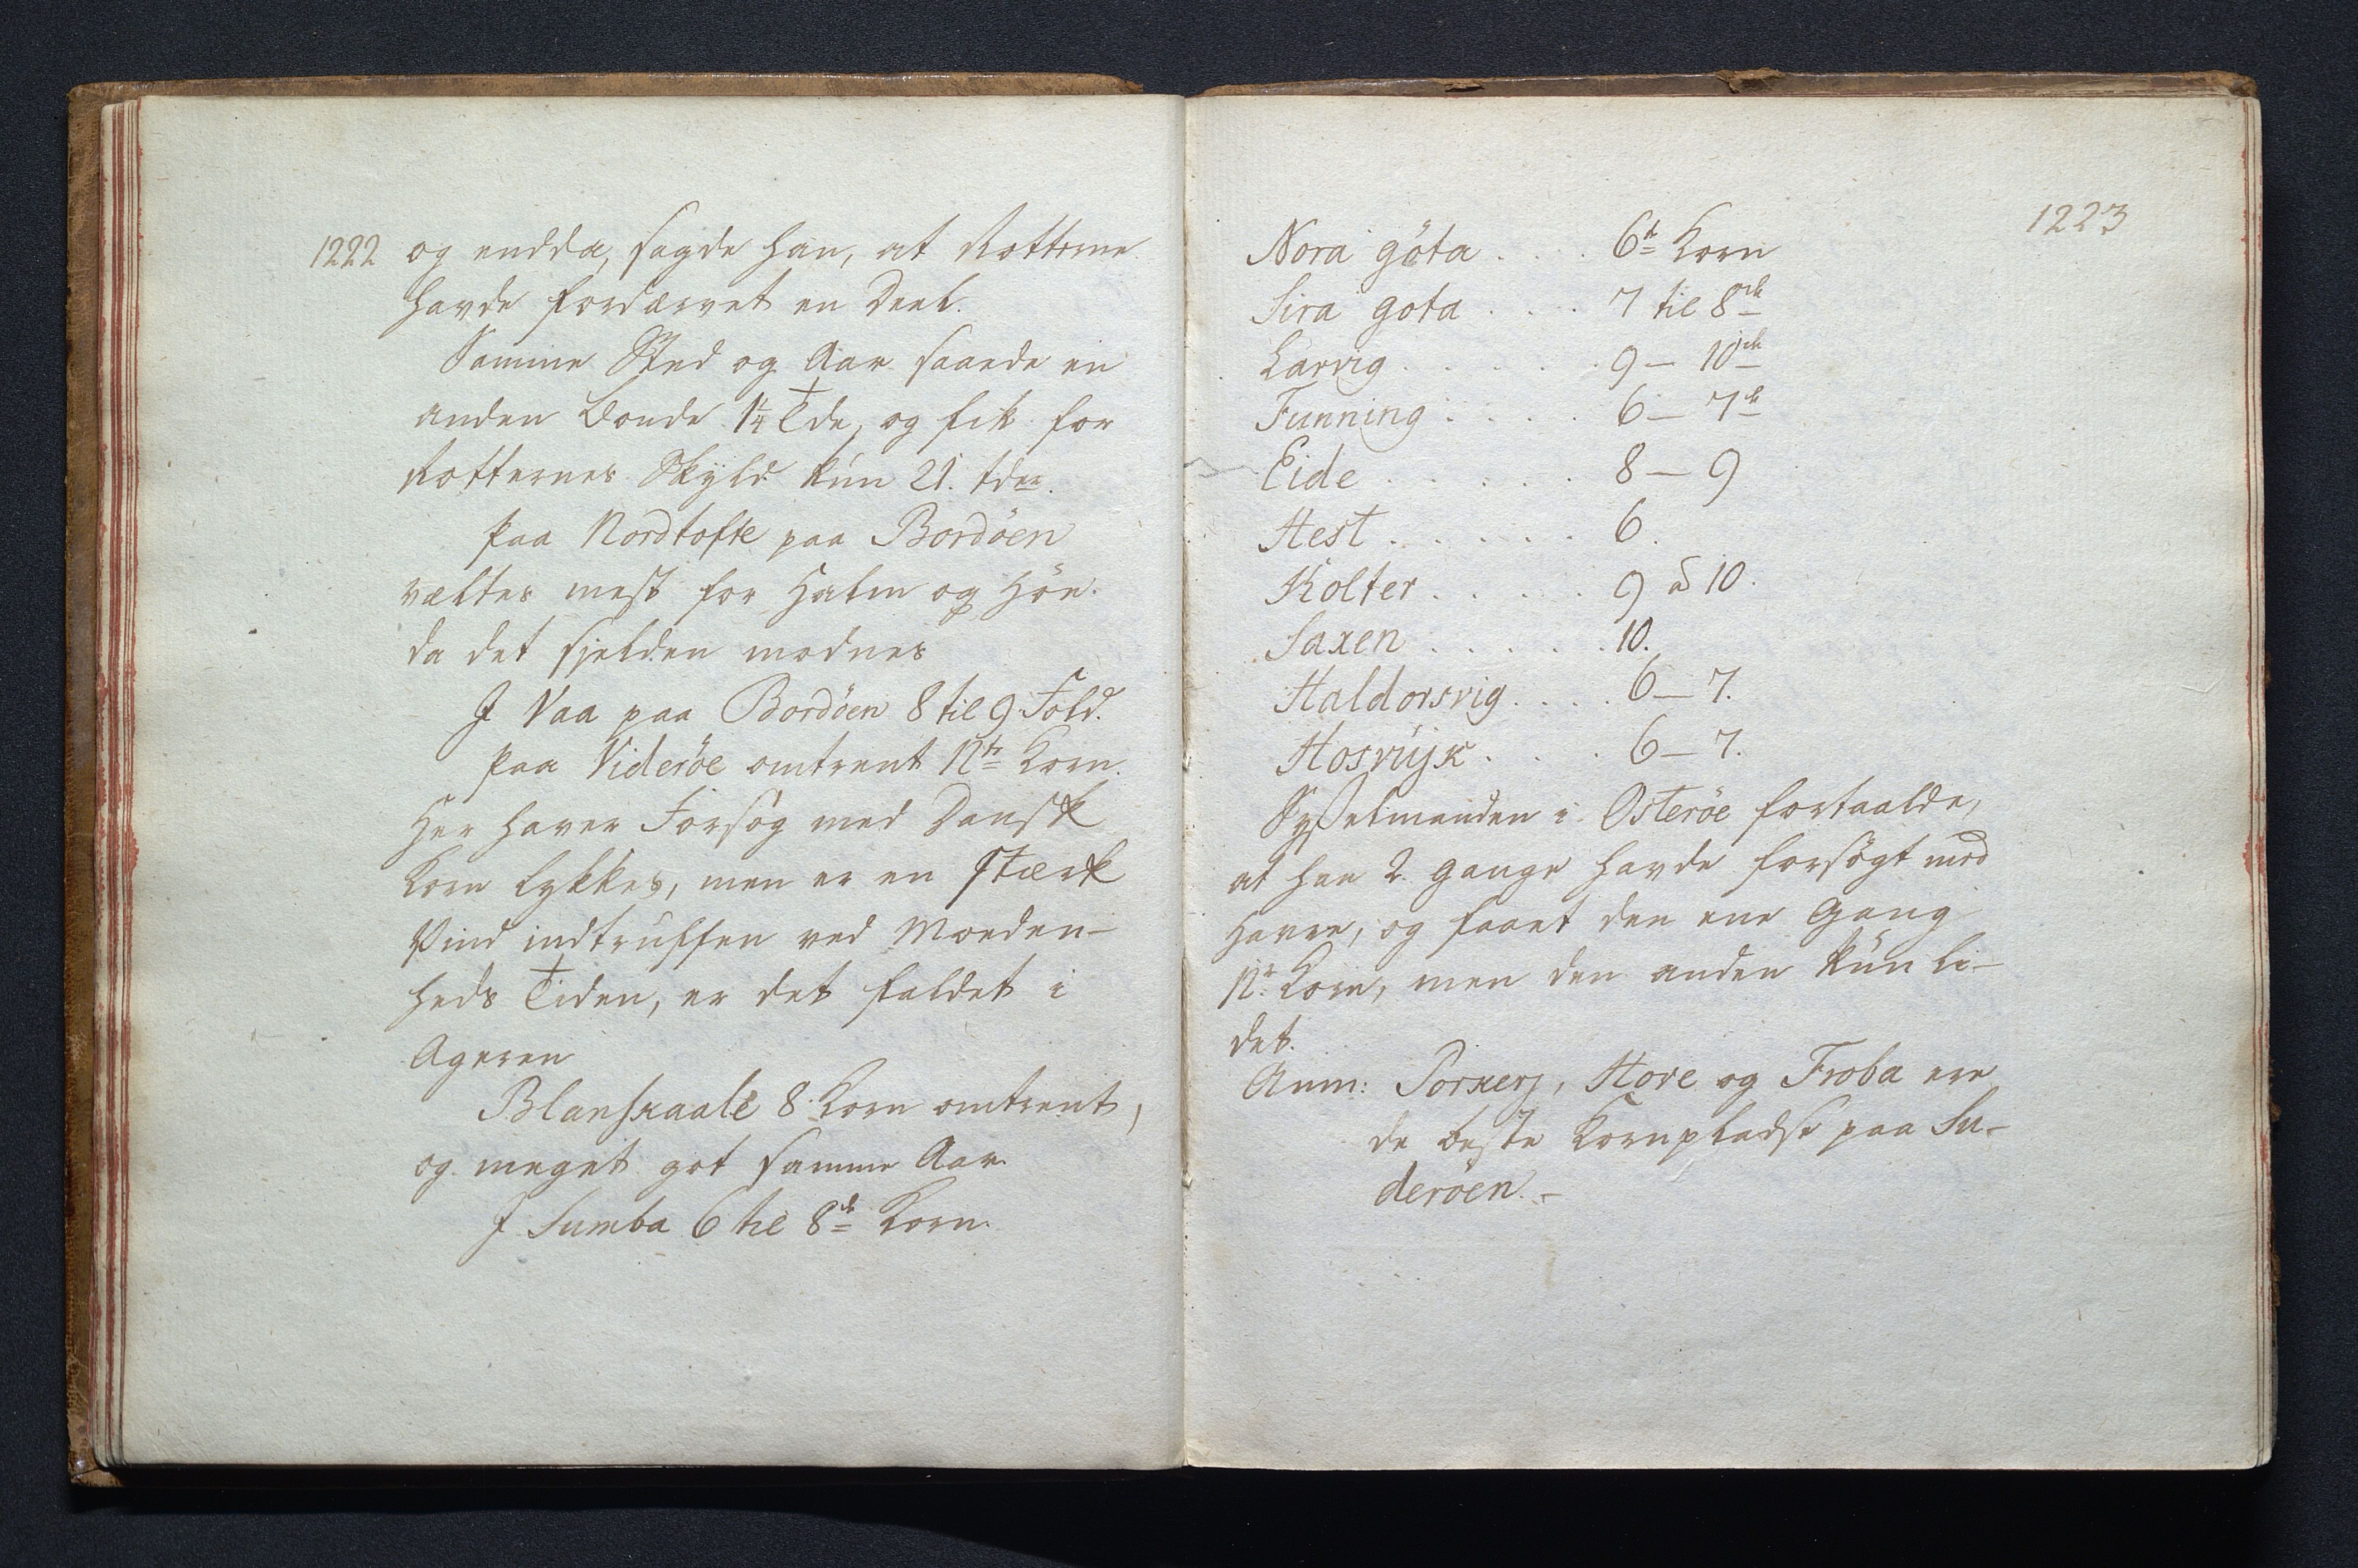 1222
og endda, sagde han, at Rotterne
havde fordærvet en Deel.
Samme Sted og Aar saaede en
anden Bonde 1¼ Tde, og fik for
Rotternes Skyld kun 21. tder.
Paa Nordtofte paa Bordöen
vælter mest for Halm og Höe.
da det sjelden modnes
I Vaa paa Bordöen 8 til 9 Fold.
Paa Videröe omtrent 12te Korn.
Her haver Forsög med Dansk
Korn lykkes, men er en stærk
Vind indtruffen ved Moden-
heds Tiden, er det faldet i
Ageren
Blanskaale 8 Korn omtrent,
og meget got samme Aar.
I Sumba 6 til 8de Korn.
1223
Nora göta . . . . 6te Korn
Sira gota . . . . 7 til 8de
Larvig . . . . . . 9 — 10de
Funning . . . . 6 — 7de
Eide . . . . . . 8 — 9
Hest . . . . . . 6.
Kolter . . . . . 9 à 10.
Saxen . . . . . . 10.
Haldorsvig . . . . 6 — 7.
Hosvijk . . . . 6 — 7.
Sysselmanden i Osteröe fortaalde,
at han 2. Gange havde forsögt med
Havre, og faaet den ene Gang
12. Korn, men den anden kun li-
det.
Anm: Porkerj, Hove og Froba ere
de beste Kornpladse paa Su-
deröen. -